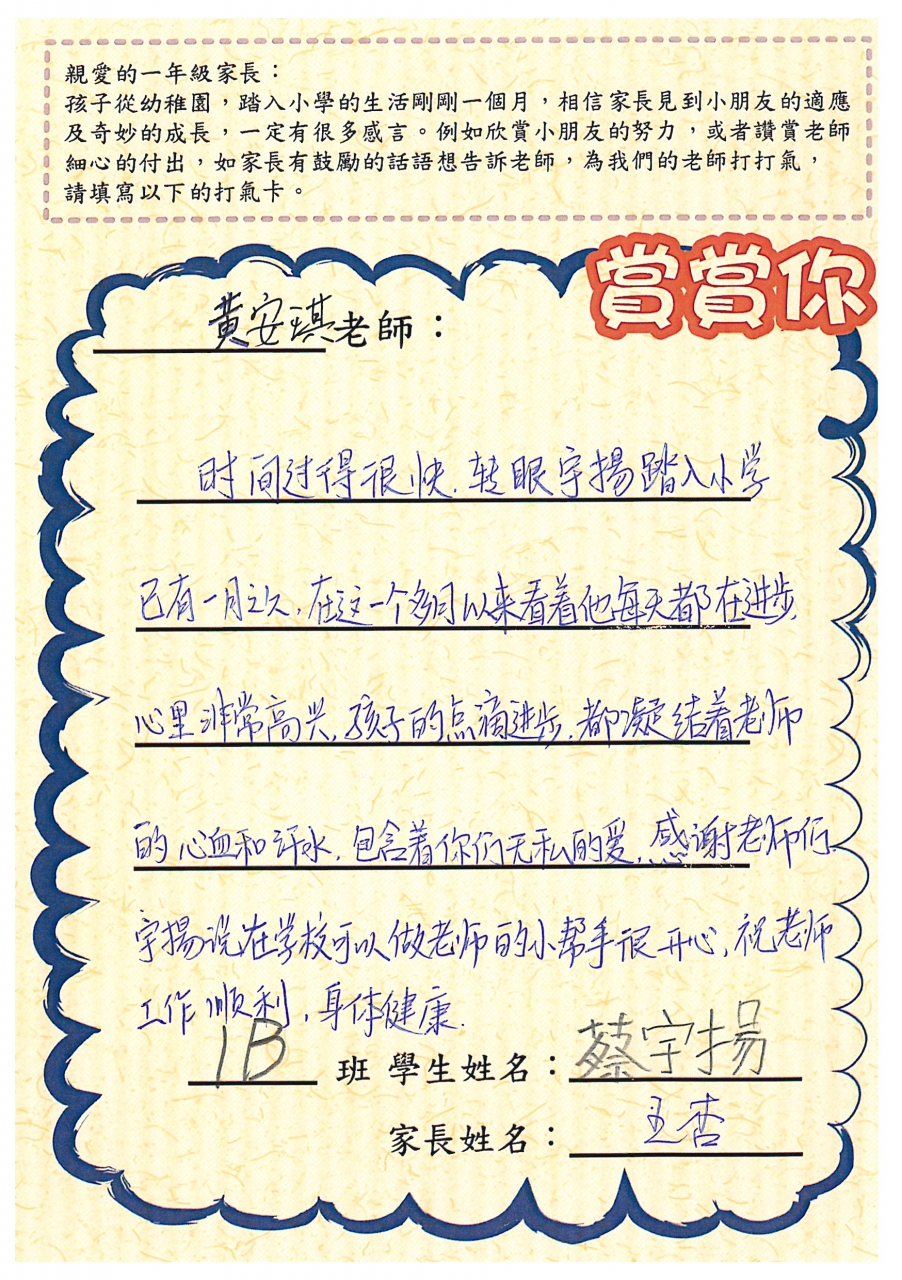 親愛的一年級家長：
孩子從幼稚園，踏入小學的生活剛剛一個月，相信家長見到小朋友的適應
及奇妙的成長，一定有很多感言。例如欣賞小朋友的努力，或者讚賞老師
細心的付出，如家長有鼓勵的話語想告訴老師，為我們的老師打打氣，
請填寫以下的打氣卡。
賞賞你
黃安琪老師：
时间过得很快，转眼宇揚踏入小学
已有一月之久，在这一个多月以来看着他每天都在进步，
心里非常高兴，孩子的点滴进步，都凝结着老师
的心血和汗水，包含着你们无私的爱，感谢老师们，
宇揚说在学校可以做老师的小帮手很开心，祝老师
工作顺利，身体健康.
1B 班 學生姓名：蔡宇揚
家長姓名：王杏